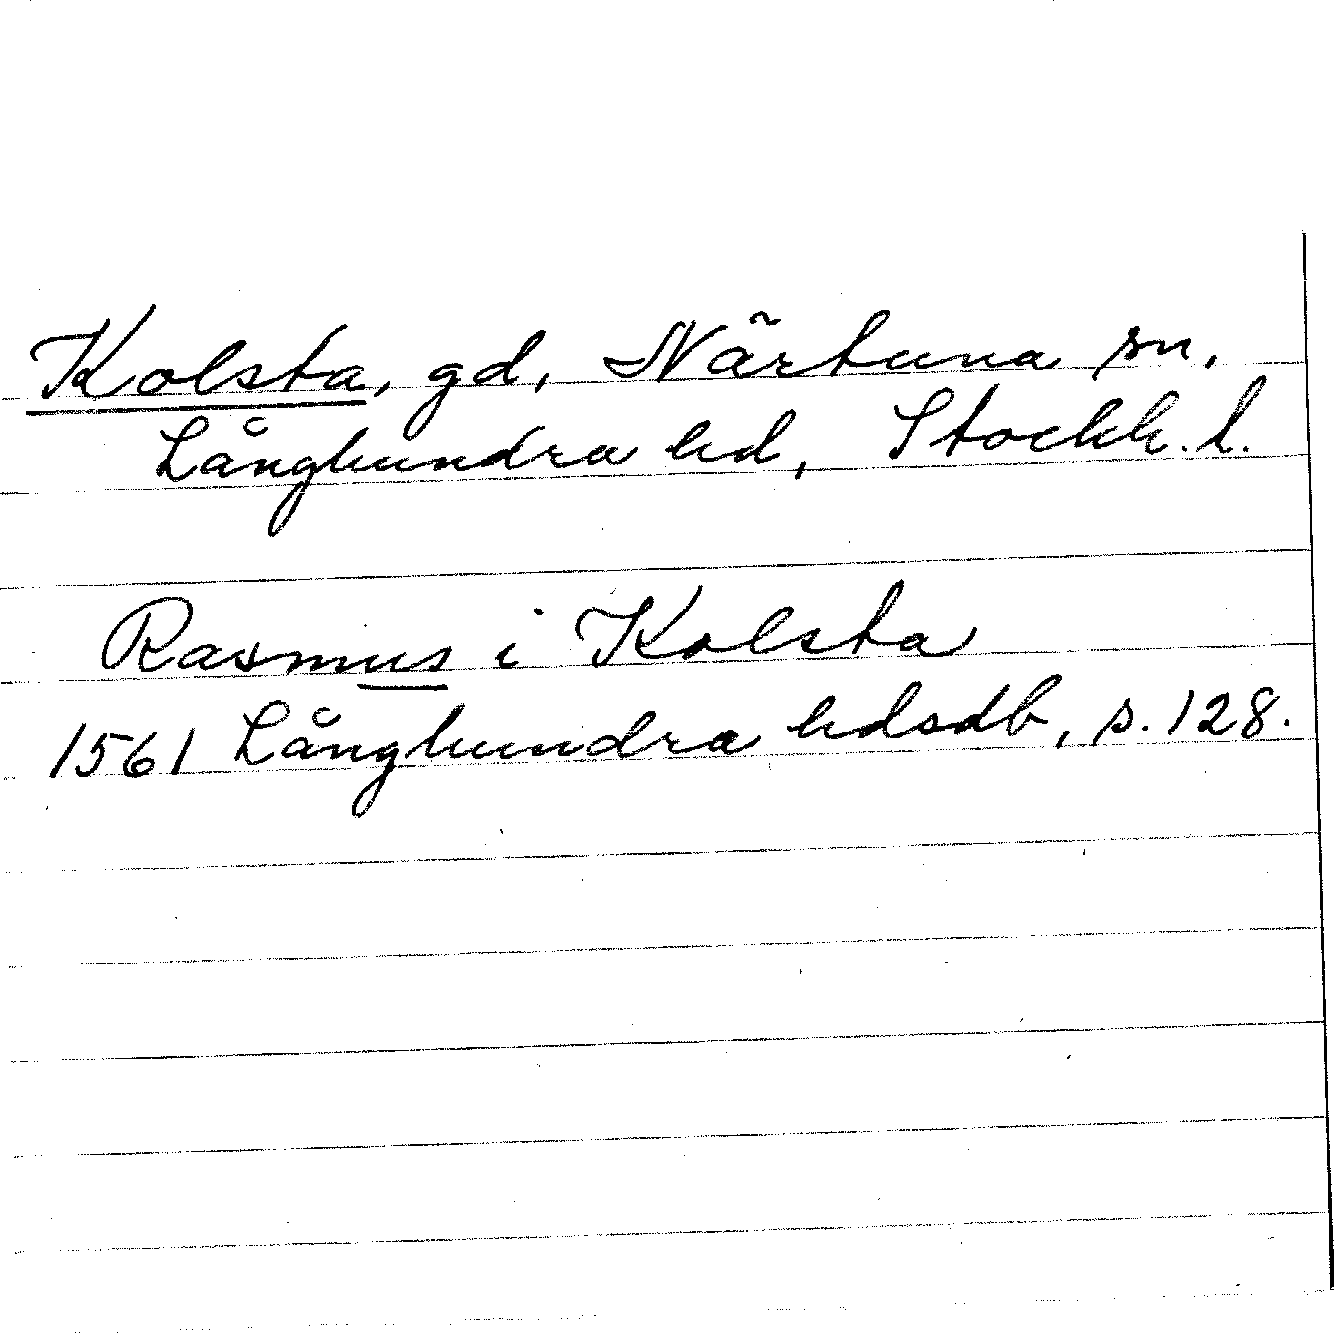 Kolsta, gd, Närtuna sn,
Långhundra hd, Stockh. l.
Rasmus i Kolsta
1561 Långhundra hdsdb, s. 128.